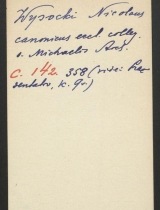 Wysocki Nicolaus
canonicus eccl. colleg.
s. Michaelis Arch.
c. 142. 358 (vise: Prae-
sentatio, k. gr.)